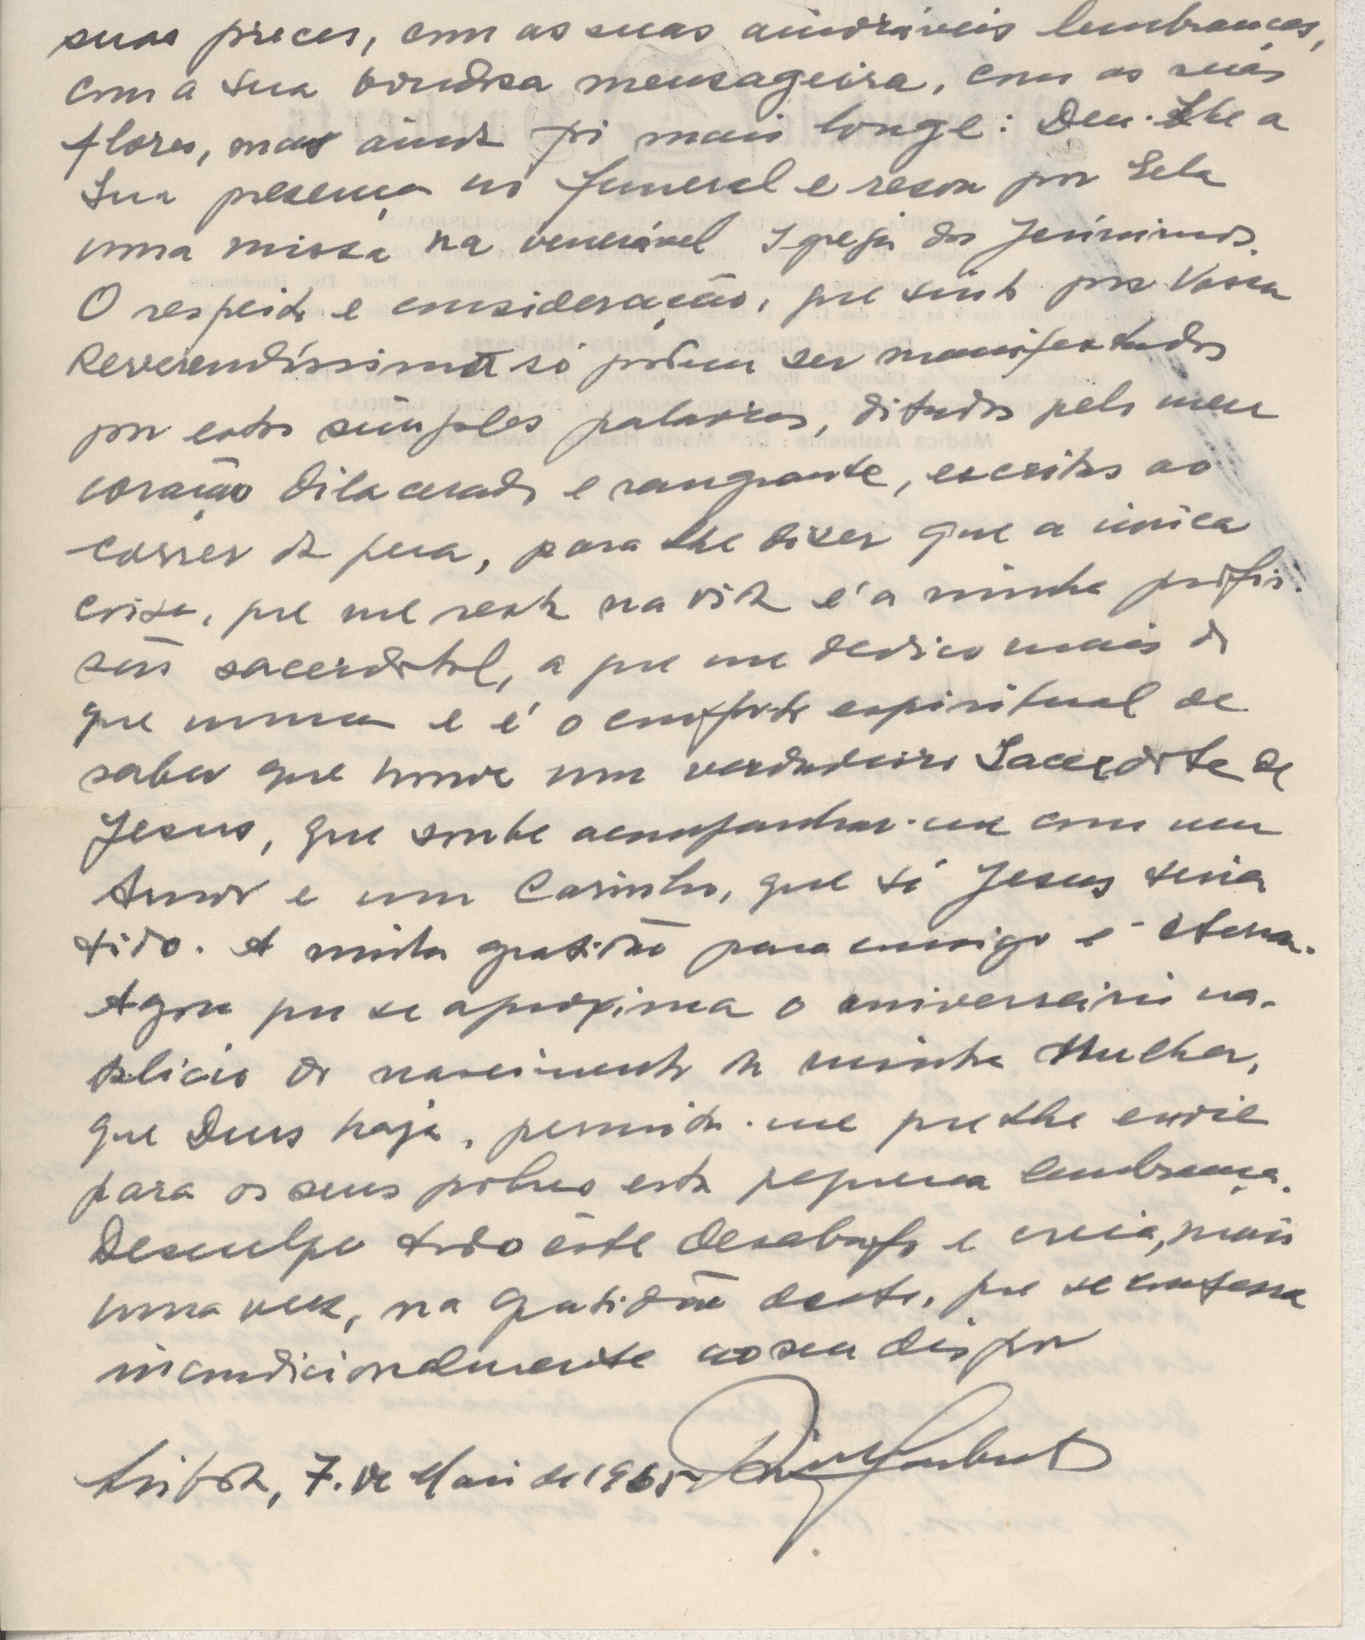 suas preces, com as suas amoráveis lembranças,
com a sua bondosa mensageira, com as suas
flores, mas ainda foi mais longe: Deu-lhe a
Sua presença no funeral e resou por Ela
uma missa na venerável Igreja dos Jerónimos.
O respeito e consideração, que sinto por Vossa
Reverendíssima só podem ser manifestados
por estas simples palavras, ditadas pelo meu
coração dilacerado e sangrante, escritas ao
correr da pena, para lhe dizer que a única
coisa, que me resta na vida é a minha profis-
são sacerdotal, a que me dedico mais do
que nunca e é o conforto espiritual de
saber que houve um verdadeiro Sacerdote de
Jesus, que soube acompanhar-me com um
Amor e um Carinho, que só Jesus teria
tido. A minha gratidão para consigo é eterna.
Agora que se aproxima o aniversário na-
talício do nascimento da minha Mulher,
que Deus haja, permita-me que lhe envie
para os seus pobres esta pequena lembrança.
Desculpe todo êste desabafo e creia, mais
uma vez, na gratidão deste, que se confessa
incondicionalmente ao seu dispor
Lisboa, 7. de Maio de 1965